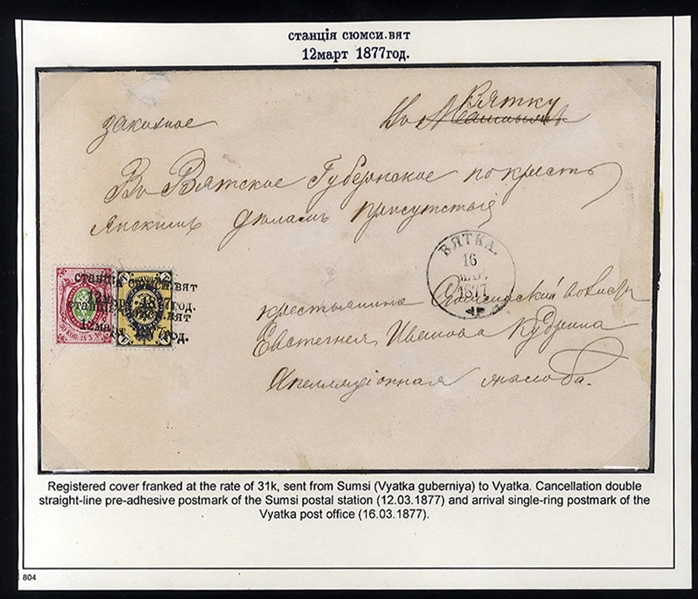 станція сюмси.вят
12март 1877год.
Вятку
заказное Во
Въ Вятское Губернское по кресть
янскимъ дѣламъ присутствіе
ВЯТКА.
16
МАР.
1877
станція сюмси.вят
12март 1877год.
станція сюмси.вят
12март 1877год.
крестьянина
Евстегнея Иванова Кудрина
Апелляціонная жалоба.
Registered cover franked at the rate of 31k, sent from Sumsi (Vyatka guberniya) to Vyatka. Cancellation double
straight-line pre-adhesive postmark of the Sumsi postal station (12.03.1877) and arrival single-ring postmark of the
Vyatka post office (16.03.1877).
804